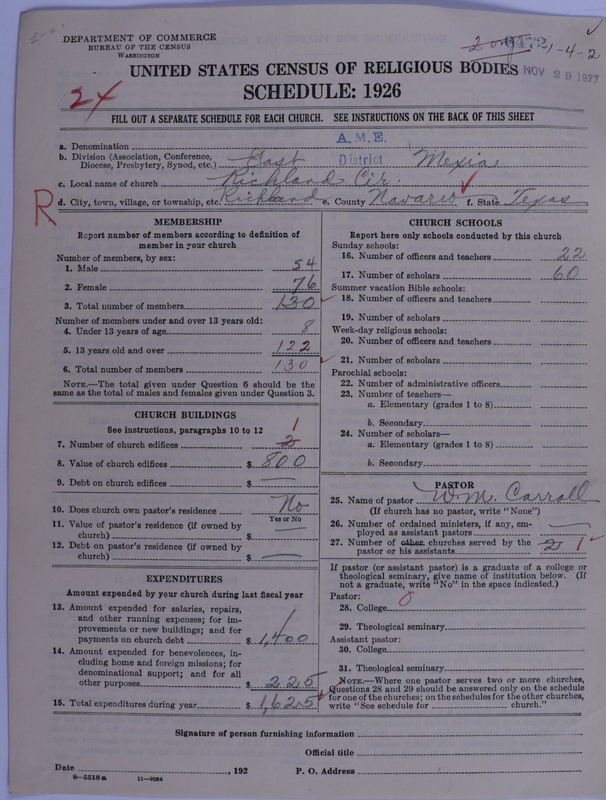 DEPARTMENT OF COMMERCE
BUREAU OF THE CENSUS
WASHINGTON
1-4-2
UNITED STATES CENSUS OF RELIGIOUS BODIES
NOV 29 1927
SCHEDULE: 1926
24
FILL OUT A SEPARATE SCHEDULE FOR EACH CHURCH. SEE INSTRUCTIONS ON THE BACK OF THIS SHEET
a. Denomination A.M.E.
b. Division (Association, Conference, Diocese, Presbytery, Synod, etc.) East District Mexia
c. Local name of church Richland Cir.
R
d. City, town, village, or township, etc. Richland e. County Navarro f. State Texas
MEMBERSHIP
Report number of members according to definition of
member in your church
Number of members, by sex:
1. Male 54
2. Female 76
3. Total number of members 130
Number of members under and over 13 years old:
4. Under 13 years of age 8
5. 13 years old and over 122
6. Total number of members 130
NOTE.—The total given under Question 6 should be
same as the total of males and females given under Question 3.
CHURCH BUILDINGS
See instructions, paragraphs 10 to 12
7. Number of church edifices 2 1
8. Value of church edifices $ 800
9. Debt on church edifices $ —
10. Does church own pastor's residence No
Yes or No
11. Value of pastor's residence (if owned by
church) $ —
12. Debt on pastor's residence (if owned by
church) $ —
EXPENDITURES
Amount expended by your church during last fiscal year
13. Amount expended for salaries, repairs,
and other running expenses; for im-
provements or new buildings; and for
payments on church debt $ 1,400
14. Amount expended for benevolences, in-
cluding home and foreign missions; for
denominational support; and for all
other purposes $ 225
15. Total expenditures during year $ 1,625
CHURCH SCHOOLS
Report here only schools conducted by this church
Sunday schools:
16. Number of officers and teachers 22
17. Number of scholars 60
Summer vacation Bible schools:
18. Number of officers and teachers
19. Number of scholars
Week-day religious schools:
20. Number of officers and teachers
21. Number of scholars
Parochial schools:
22. Number of administrative officers
23. Number of teachers—
a. Elementary (grades 1 to 8)
b. Secondary
24. Number of scholars—
a. Elementary (grades 1 to 8)
b. Secondary
PASTOR
25. Name of pastor W.M. Carroll
(If church has no pastor, write "None")
26. Number of ordained ministers, if any, em-
ployed as assistant pastors —
27. Number of other churches served by the
pastor or his assistants 2 1
If pastor (or assistant pastor) is a graduate of a college or
theological seminary, give name of institution below. (If
not a graduate, write "No" in the space indicated.)
Pastor:
28. College 0
29. Theological seminary
Assistant pastor:
30. College
31. Theological seminary
NOTE.—Where one pastor serves two or more churches,
Questions 28 and 29 should be answered only on the schedule
for one of the churches; on the schedules for the other churches,
write "See schedule for church."
Signature of person furnishing information
Official title
Date , 192 P. O. Address
8—5518a 11—9664